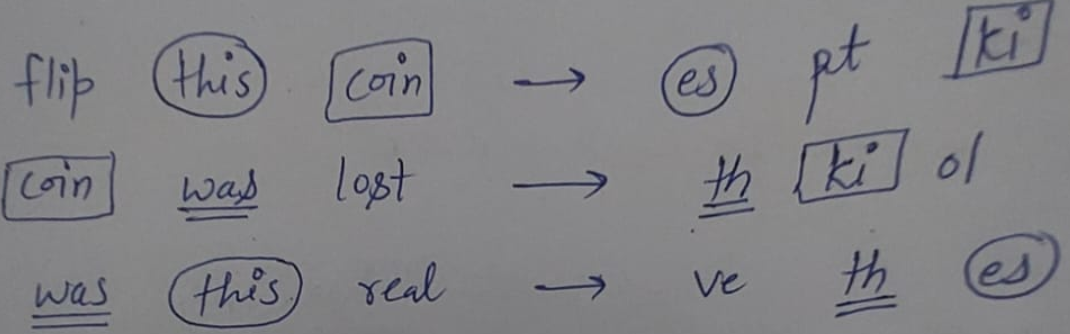 flip this coin → es pt ki
coin was lost → th ki ol
was this real → ve th es